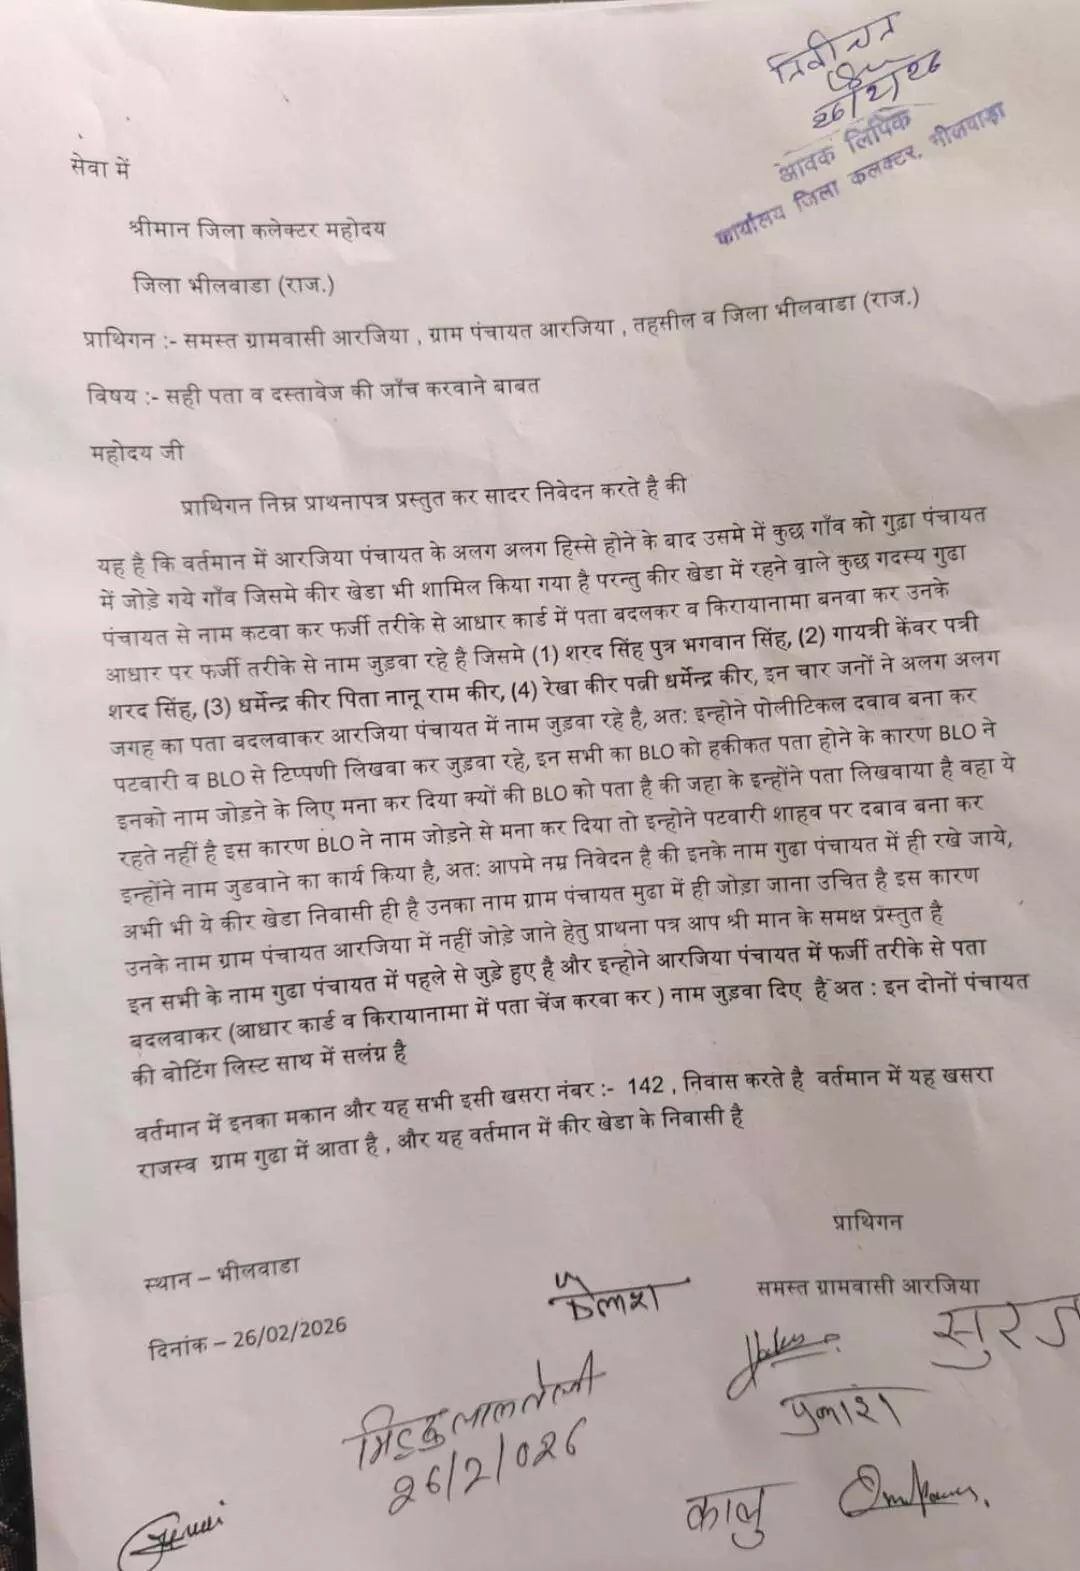 26/2/26
आवक लिपिक
कार्यालय जिला कलक्टर, भीलवाड़ा
सेवा में
श्रीमान जिला कलेक्टर महोदय
जिला भीलवाडा (राज.)
प्राथिगन :- समस्त ग्रामवासी आरजिया , ग्राम पंचायत आरजिया , तहसील व जिला भीलवाडा (राज.)
विषय :- सही पता व दस्तावेज की जाँच करवाने बाबत
महोदय जी
प्राथिगन निम्र प्राथनापत्र प्रस्तुत कर सादर निवेदन करते है की
यह है कि वर्तमान में आरजिया पंचायत के अलग अलग हिस्से होने के बाद उसमे में कुछ गाँव को गुढ़ा पंचायत
में जोड़े गये गाँव जिसमे कीर खेडा भी शामिल किया गया है परन्तु कीर खेडा में रहने वाले कुछ गदस्य गुढा
पंचायत से नाम कटवा कर फर्जी तरीके से आधार कार्ड में पता बदलकर व किरायानामा बनवा कर उनके
आधार पर फर्जी तरीके से नाम जुड़वा रहे है जिसमे (1) शरद सिंह पुत्र भगवान सिंह, (2) गायत्री केंवर पत्री
शरद सिंह, (3) धर्मेन्द्र कीर पिता नानू राम कीर, (4) रेखा कीर पत्नी धर्मेन्द्र कीर, इन चार जनों ने अलग अलग
जगह का पता बदलवाकर आरजिया पंचायत में नाम जुड़वा रहे है, अत: इन्होने पोलीटिकल दवाव बना कर
पटवारी व BLO से टिप्पणी लिखवा कर जुड़वा रहे, इन सभी का BLO को हकीकत पता होने के कारण BLO ने
इनको नाम जोड़ने के लिए मना कर दिया क्यों की BLO को पता है की जहा के इन्होंने पता लिखवाया है वहा ये
रहते नहीं है इस कारण BLO ने नाम जोड़ने से मना कर दिया तो इन्होने पटवारी शाहव पर दबाव बना कर
इन्होंने नाम जुडवाने का कार्य किया है, अत: आपमे नम्र निवेदन है की इनके नाम गुढा पंचायत में ही रखे जाये,
अभी भी ये कीर खेडा निवासी ही है उनका नाम ग्राम पंचायत मुढा में ही जोड़ा जाना उचित है इस कारण
उनके नाम ग्राम पंचायत आरजिया में नहीं जोड़े जाने हेतु प्राथना पत्र आप श्री मान के समक्ष प्रस्तुत है
इन सभी के नाम गुढा पंचायत में पहले से जुड़े हुए है और इन्होने आरजिया पंचायत में फर्जी तरीके से पता
बदलवाकर (आधार कार्ड व किरायानामा में पता चेंज करवा कर ) नाम जुड़वा दिए है अत : इन दोनों पंचायत
की वोटिंग लिस्ट साथ में सलंग्न है
वर्तमान में इनका मकान और यह सभी इसी खसरा नंबर :- 142 , निवास करते है वर्तमान में यह खसरा
राजस्व ग्राम गुढा में आता है , और यह वर्तमान में कीर खेडा के निवासी है
प्राथिगन
स्थान – भीलवाडा
समस्त ग्रामवासी आरजिया
दिनांक – 26/02/2026
सुरज
26/2/026
कालु